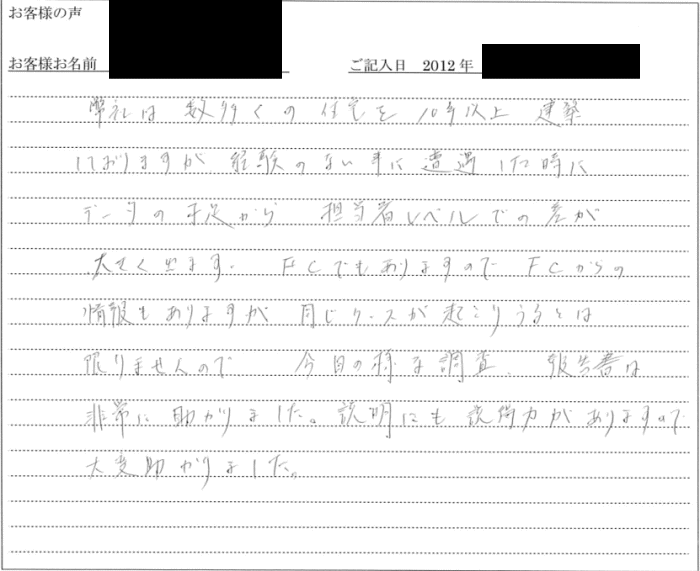 お客様の声
お客様お名前 ご記入日 2012年
弊社は 数多くの 住宅を 10年以上 建築
しておりますが 経験のない事に 遭遇した時に
データの不足から 担当者レベルでの差が
大きく出ます。 FCでもありますので FCからの
情報もありますが 同じケースが起こりうるとは
限りませんので 今回の様な調査、報告書は
非常に助かりました。説明にも説得力がありますので
大変助かりました。